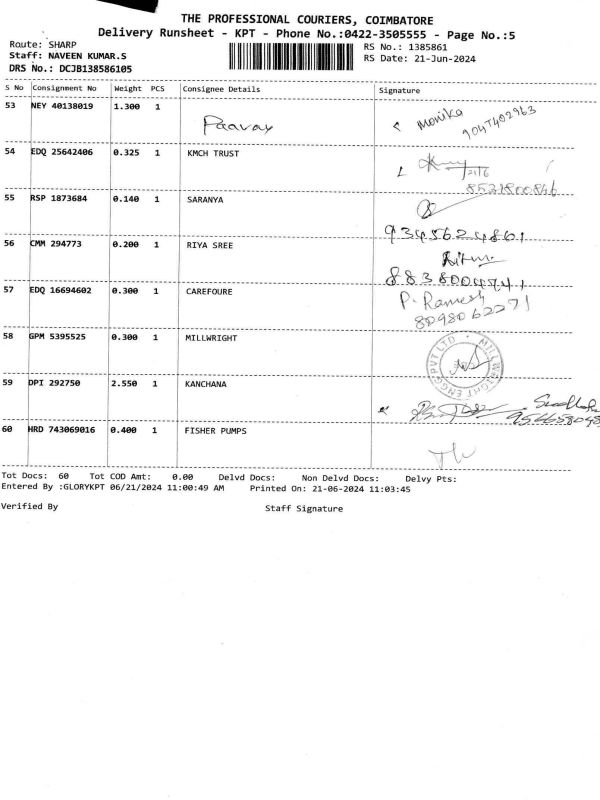 THE PROFESSIONAL COURIERS, COIMBATORE
Delivery Runsheet - KPT - Phone No.:0422-3505555 - Page No.:5
Route: SHARP
RS No.: 1385861
Staff: NAVEEN KUMAR.S
RS Date: 21-Jun-2024
DRS No.: DCJB138586105
S No Consignment No Weight PCS Consignee Details Signature
53 NEY 40138019 1.300 1 Paavay Monika
54 EDQ 25642406 0.325 1 KMCH TRUST 21/6
8531800846
55 RSP 1873684 0.140 1 SARANYA
9345624801
56 CMM 294773 0.200 1 RIYA SREE
8838004741
57 EDQ 16694602 0.300 1 CAREFOURE P. Ramesh
8098062271
58 GPM 5395525 0.300 1 MILLWRIGHT
MILLWRIGHT ENGG PVT LTD
59 DPI 292750 2.550 1 KANCHANA
60 HRD 743069016 0.400 1 FISHER PUMPS
Tot Docs: 60 Tot COD Amt: 0.00 Delvd Docs: Non Delvd Docs: Delvy Pts:
Entered By :GLORYKPT 06/21/2024 11:00:49 AM Printed On: 21-06-2024 11:03:45
Verified By Staff Signature